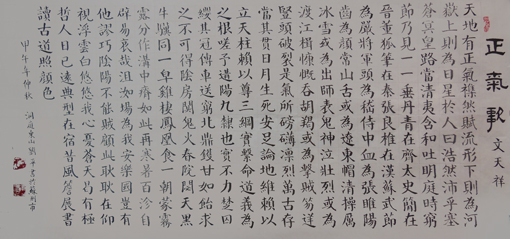 正氣歌
文天祥
天地有正氣雜然賦流形下則為河
嶽上則為日星於人曰浩然沛乎塞
蒼冥皇路當清夷含和吐明庭時窮
節乃見一一垂丹青在齊太史簡在
晉董狐筆在秦張良椎在漢蘇武節
為嚴將軍頭為嵇侍中血為張睢陽
齒為顏常山舌或為遼東帽清操厲
冰雪或為出師表鬼神泣壯烈或為
渡江楫慷慨吞胡羯或為擊賊笏逆
豎頭破裂是氣所磅礴凜烈萬古存
當其貫日月生死安足論地維賴以
立天柱賴以尊三綱實繫命道義為
之根嗟予遘陽九隸也實不力楚囚
纓其冠傳車送窮北鼎鑊甘如飴求
之不可得陰房闃鬼火春院閟天黑
牛驥同一皁雞棲鳳凰食一朝蒙霧
露分作溝中瘠如此再寒暑百沴自
辟易哀哉沮洳場為我安樂國豈有
他謬巧陰陽不能賊顧此耿耿在仰
視浮雲白悠悠我心憂蒼天曷有極
哲人日已遠典型在宿昔風簷展書
讀古道照顏色
甲午年仲秋
洞庭東山